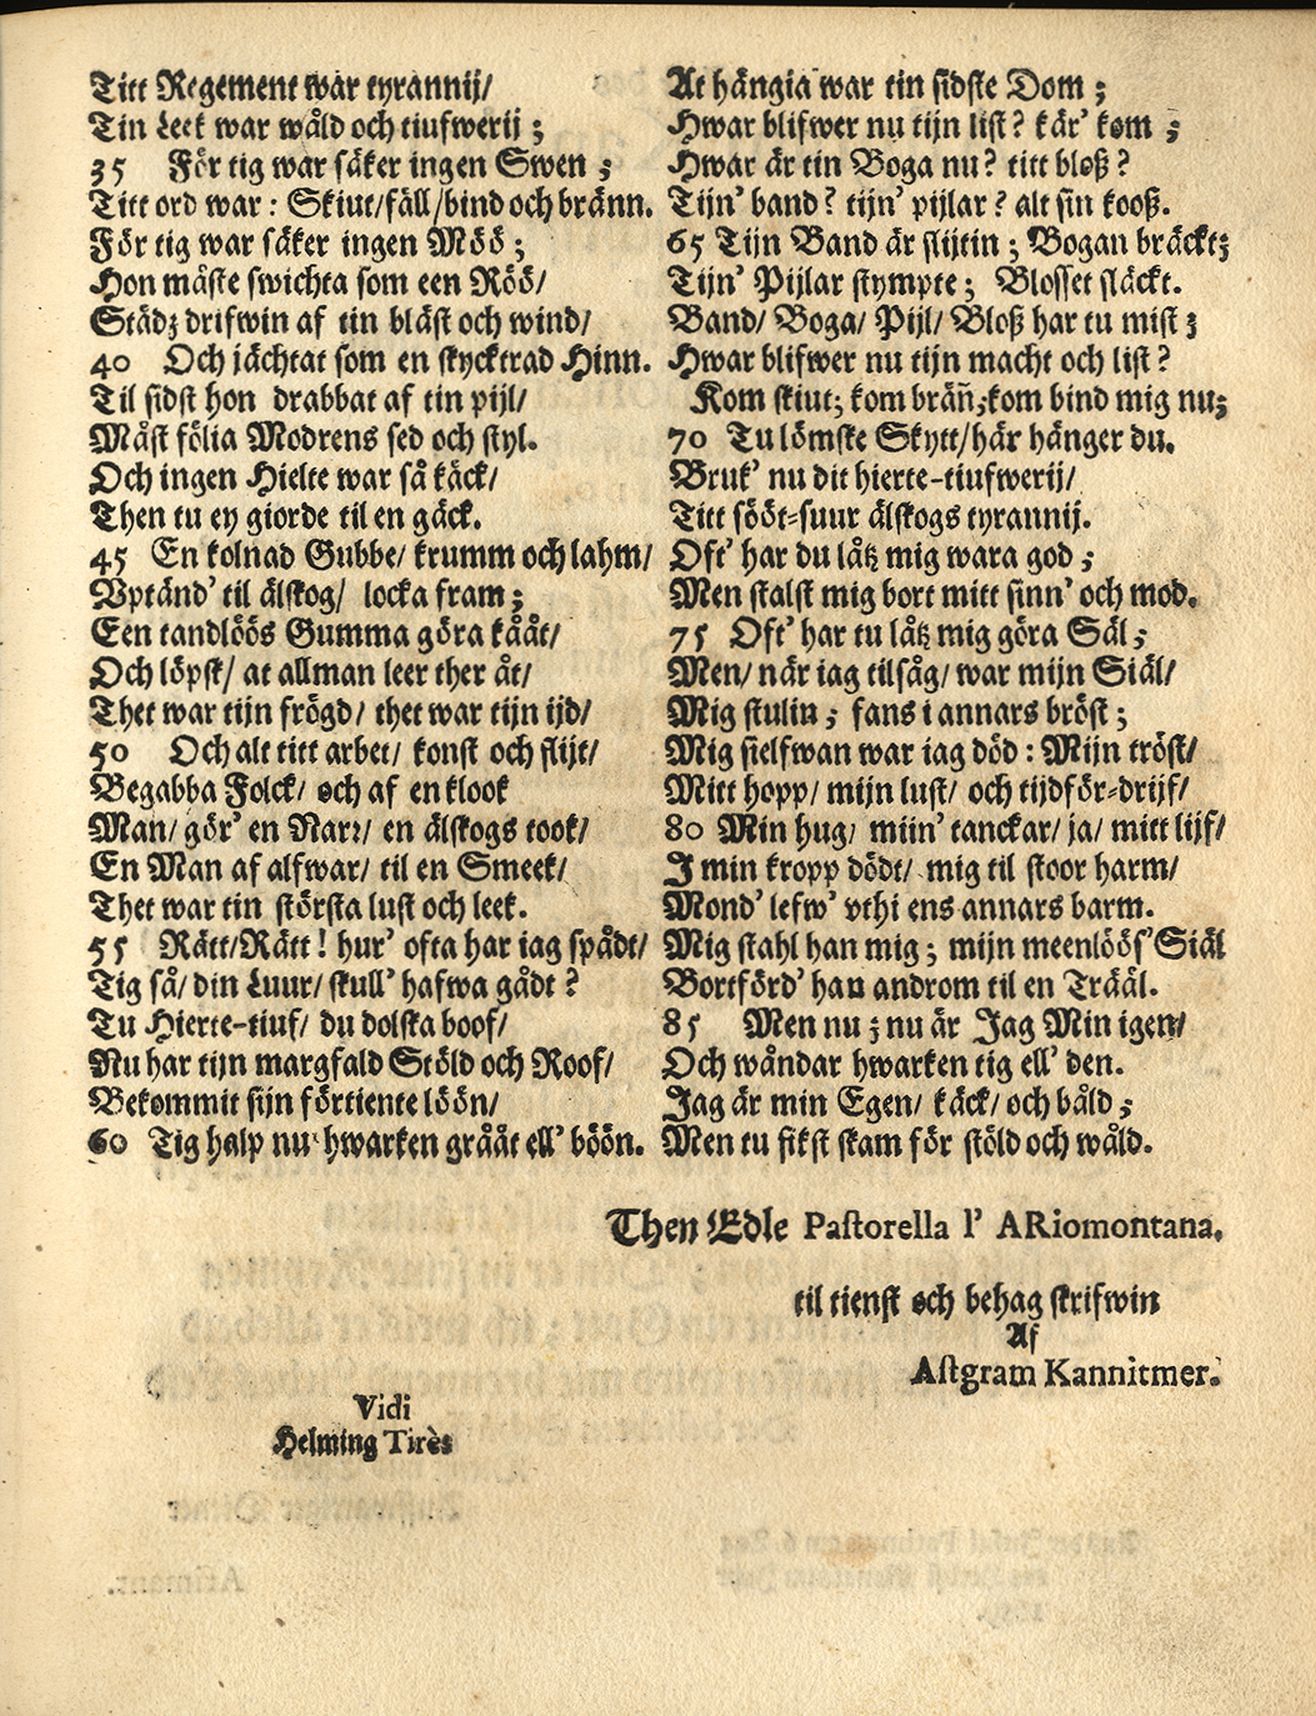 Titt Regement war tyrannij/
Tin Leek war wåld och tiufwerij ;
35 För tig war säker ingen Swen ;
Titt ord war : Skiut/fäll/bind och bränn.
För tig war säker ingen Möö ;
Hon måste swichta som een Röö/
Städz drifwin af tin bläst och wind/
40 Och jächtat som en stycktrad Hinn.
Til sidst hon drabbat af tin pijl/
Måst fölia Modrens sed och styl.
Och ingen Hielte war så käck/
Then tu ey giorde til en gäck.
45 En kolnad Gubbe/ krumm och lahm/
Vptänd' til älskog/ locka fram ;
Een tandlöös Gumma göra kååt/
Och löpsk/ at allman leer ther åt/
Thet war tijn frögd/ thet war tijn ijd/
50 Och alt titt arbet/ konst och flijt/
Begabba Folck/ och af en klook
Man/ gör' en Narr/ en älskogs took/
En Man af alfwar/ til en Smeek/
Thet war tin största lust och leek.
55 Rätt/Rätt! hur' ofta har iag spådt/
Tig så/ din Luur/ skull' hafwa gådt ?
Tu Hierte-tiuf/ du dolska boof/
Nu har tijn margfald Stöld och Roof/
Bekommit sijn förtiente löön/
60 Tig halp nu hwarken gråät ell' böön.
At hängia war tin sidste Dom ;
Hwar blifwer nu tijn list ? kär' kom ;
Hwar är tin Boga nu ? titt bloß ?
Tijn' band ? tijn' pijlar ? alt sin kooß.
65 Tijn Band är slijtin ; Bogan bräckt;
Tijn' Pijlar stympte ; Blosset släckt.
Band/ Boga/ Pijl/ Bloß har tu mist ;
Hwar blifwer nu tijn macht och list ?
Kom skiut; kom brän̄;kom bind mig nu;
70 Tu lömske Skytt/här hänger du.
Bruk' nu dit hierte-tiufwerij/
Titt sööt-suur älskogs tyrannij.
Oft' har du låtz mig wara god ;
Men stalst mig bort mitt sinn' och mod.
75 Oft' har tu låtz mig göra Säl ;
Men/ när iag tilsåg/ war mijn Siäl/
Mig stulin ; fans i annars bröst ;
Mig sielfwan war iag död : Mijn tröst/
Mitt hopp/ mijn lust/ och tijdför-drijf/
80 Min hug/ miin' tanckar/ ja/ mitt lijf/
I min kropp dödt/ mig til stoor harm/
Mond' lefw' vthi ens annars barm.
Mig stahl han mig ; mijn meenlöös' Siäl
Bortförd' han androm til en Trääl.
85 Men nu ; nu är Jag Min igen/
Och wåndar hwarken tig ell' den.
Jag är min Egen/ käck/ och båld ;
Men tu fikst skam för stöld och wåld.
Then Edle Pastorella l' ARiomontana.
til tienst och behag skrifwin
Af
Astgram Kannitmer.
Vidi
Helming Tirès